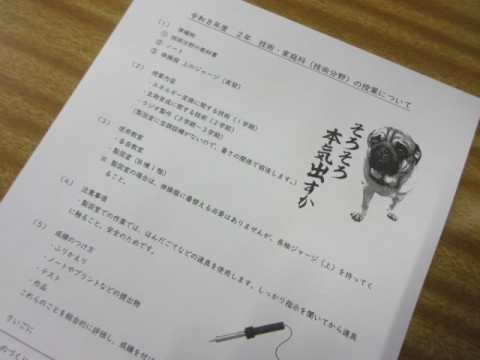 令和8年度 2年 技術・家庭科(技術分野)の授業について
(1) 準備物
① 技術分野の教科書
② ノート
③ 体操服 上のジャージ(実習)
(2) 授業内容
・エネルギー変換に関する技術(1学期)
・生物育成に関する技術(2学期)
・ラジオ製作(2学期~3学期)
(製図室に空調設備がないので、暑さの関係で前後します。)
(3) 使用教室
・各自教室
・製図室(B棟1階)
※ 製図室の場合は、体操服に着替える必要はありませんが、長袖ジャージ(上)を持ってく
ること。
(4) 注意事項
・製図室での作業では、はんだごてなどの道具を使用します。しっかり指示を聞いてから道具
に触ること。安全のためです。
(5) 成績のつけ方
・ふりかえり
・ノートやプリントなどの提出物
・テスト
・作品
これらのことを総合的に評価し、成績を付け
さいごに
そろそろ
本気出すか